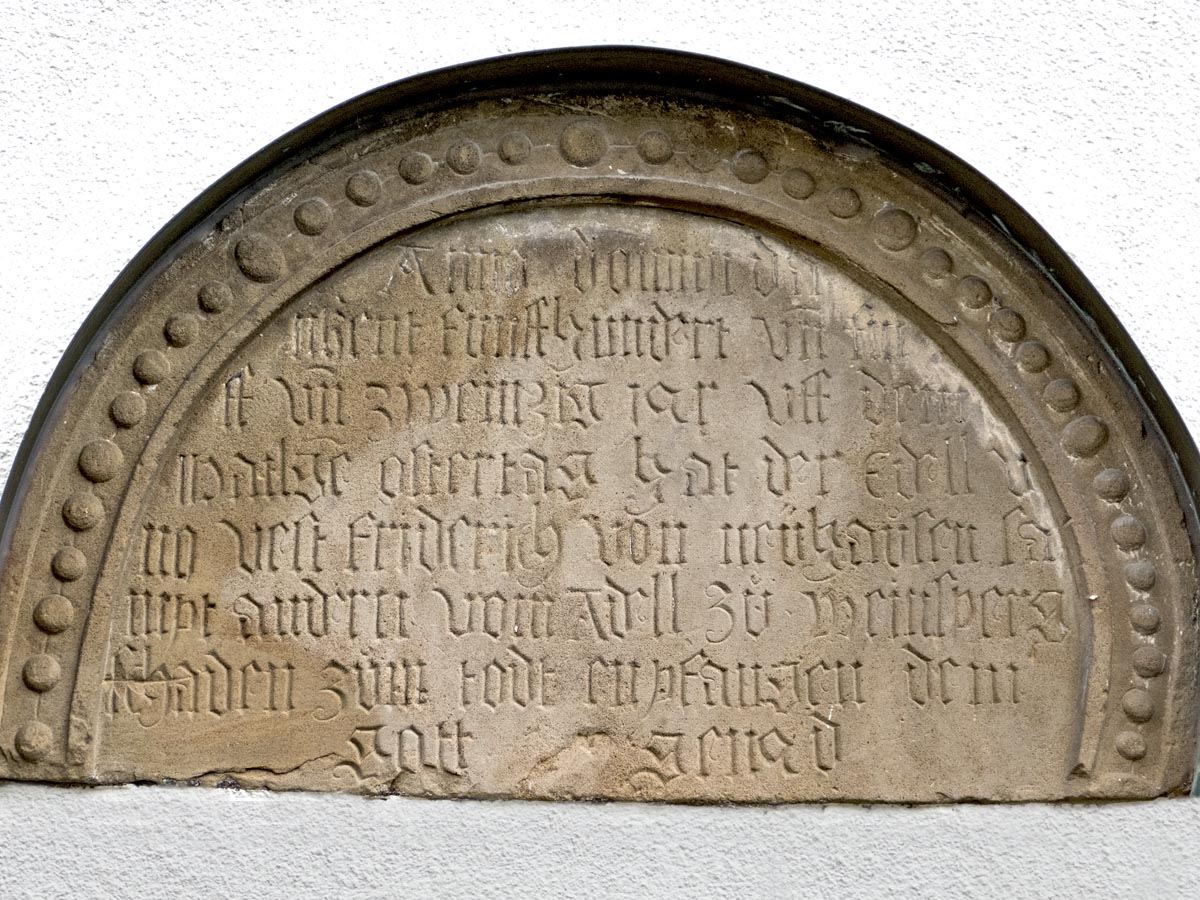 Anno domini da
ichent funffhundert vn fin
ff vn zweinzig jar vff dem
hailge ostertag hat der Edell v
no vest fridrich von neuhausen sa
mpt andern vom Adell zu weinsperg
schaden zum todt enpfangen dem
gott genad